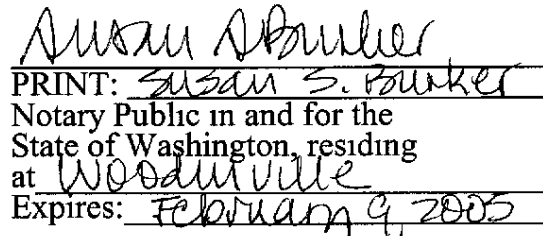 Susan S Bunker
PRINT: Susan S. Bunker
Notary Public in and for the
State of Washington, residing
at Woodinville
Expires: February 9, 2005